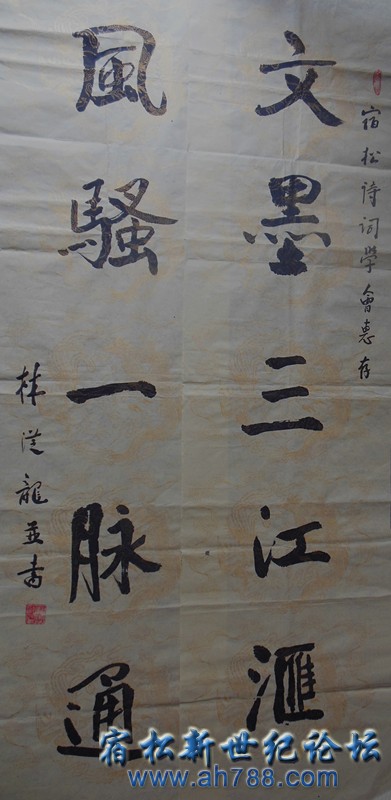 宿松诗词学會惠存
文墨三江滙
風騷一脉通
林從龍並書
宿松新世纪论坛
www.ah788.com